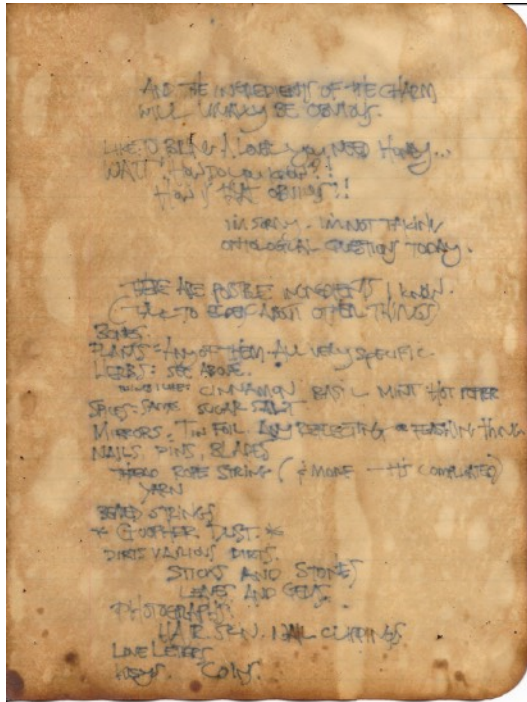 AND THE INGREDIENTS OF THE CHARM
WILL USUALLY BE OBVIOUS.
LIKE TO BRING A LOVE YOU NEED HONEY...
WAIT! HOW DO YOU KNOW?!
HOW IS THAT OBVIOUS?!
I'M SORRY. I'M NOT TAKING
ONTOLOGICAL QUESTIONS TODAY.
THESE ARE POSSIBLE INGREDIENTS I KNOW.
(TALK TO ABOUT OTHER THINGS)
BONES.
PLANTS: ANY OF THEM. ALL VERY SPECIFIC.
HERBS: SEE ABOVE.
CINNAMON BASIL MINT HOT PEPPER
SPICES: SAME SUGAR SALT
MIRRORS. TIN FOIL. ANY REFLECTING OR FLASHING THING
NAILS, PINS, BLADES
THREAD ROPE STRING (& MORE — IT'S COMPLICATED)
YARN
STRINGS
* GOOPHER DUST. *
DIRTS VARIOUS DIRTS.
STICKS AND STONES
LEAVES AND GEMS.
PHOTOGRAPHS.
HAIR. SKIN. NAIL CLIPPINGS.
LOVE LETTERS
COINS.